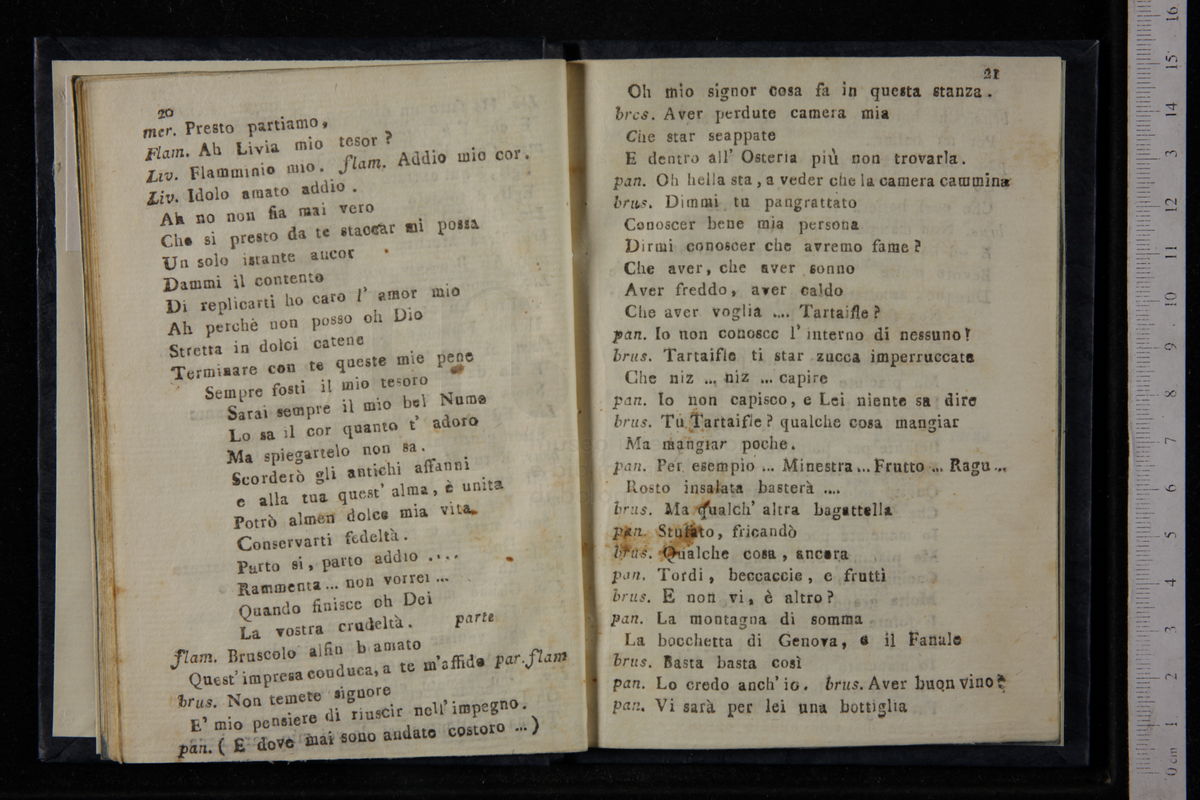 20
mer. Presto partiamo,
Flam. Ah Livia mio tesor ?
Liv. Flamminio mio. flam. Addio mio cor.
Liv. Idolo amato addio .
Ah no non fia mai vero
Che si presto da te staccar mi possa
Un solo istante ancor
Dammi il contento
Di replicarti ho caro l' amor mio
Ah perchè non posso oh Dio
Stretta in dolci catene
Terminare con te queste mie pene
Sempre fosti il mio tesoro
Sarai sempre il mio bel Nume
Lo sa il cor quanto t' adoro
Ma spiegartelo non sa .
Scorderò gli antichi affanni
e alla tua quest' alma, è unita
Potrò almen dolce mia vita
Conservarti fedeltà .
Parto si, parto addio ....
Rammenta ... non vorrei ...
Quando finisce oh Dei
La vostra crudeltà . parte
flam. Bruscolo alfin b amato
Quest' impresa conduca, a te m'affido par. flam
brus. Non temete signore
E' mio pensiere di riuscir nell' impegno.
pan. ( E dove mai sono andate costoro ... )
21
Oh mio signor cosa fa in questa stanza .
brcs. Aver perdute camera mia
Che star seappate
E dentro all' Osteria più non trovarla .
pan. Oh hella sta , a veder che la camera cammina
brus. Dimmi tu pangrattato
Conoscer bene mia persona
Dirmi conoscer che avremo fame ?
Che aver, che aver sonno
Aver freddo, aver caldo
Che aver voglia .... Tartaifle ?
pan. Io non conosce l' interno di nessuno!
brus. Tartaifle ti star zucca imperruccata
Che niz ... niz ... capire
pan. Io non capisco, e Lei niente sa dire
brus. Tu Tartaifle ? qualche cosa mangiar
Ma mangiar poche.
pan. Per esempio ... Minestra ... Frutto ... Ragu ...
Rosto insalata basterà ....
brus. Ma qualch' altra bagattella
pan. Stufato, fricandò
brus. Qualche cosa , ancora
pan. Tordi , beccaccie , e frutti
brus. E non vi, è altro ?
pan. La montagna di somma
La bocchetta di Genova, e il Fanale
brus. Basta basta così
pan. Lo credo anch' io. brus. Aver buon vino?
pan. Vi sarà per lei una bottiglia
0 cm 1 2 3 4 5 6 7 8 9 10 11 12 3 14 15 16